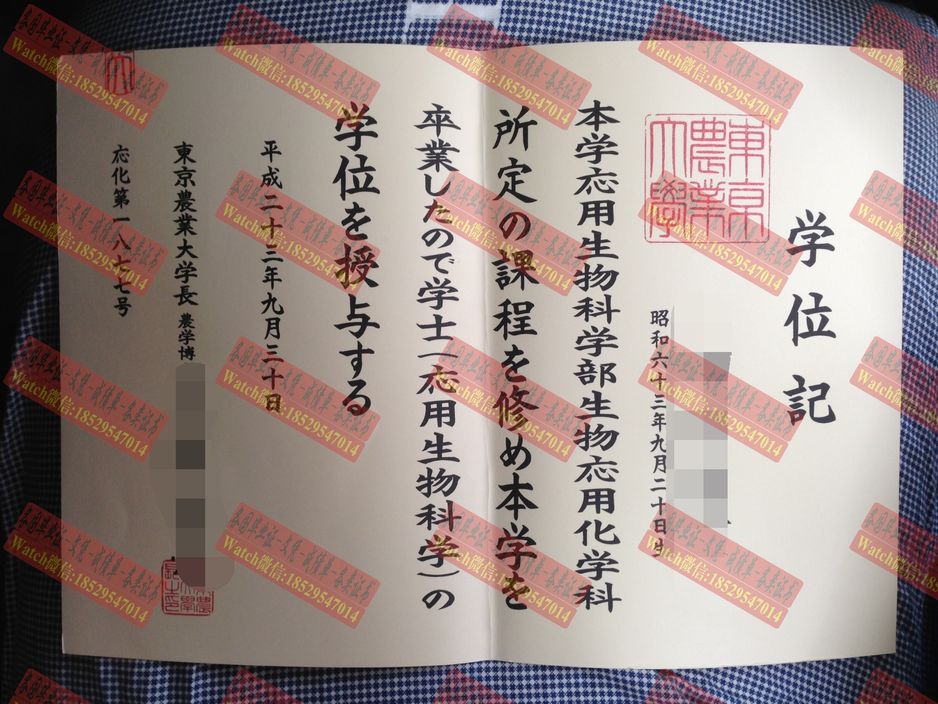 学位記
東京
農業
大學
昭和六十三年九月二十日生
本学応用生物科学部生物応用化学科
所定の課程を修め本学を
卒業したので学士(応用生物科学)の
学位を授与する
平成二十三年九月三十日
東京農業大学長 農学博
応化第一八七七号
Watch微信:18529547014